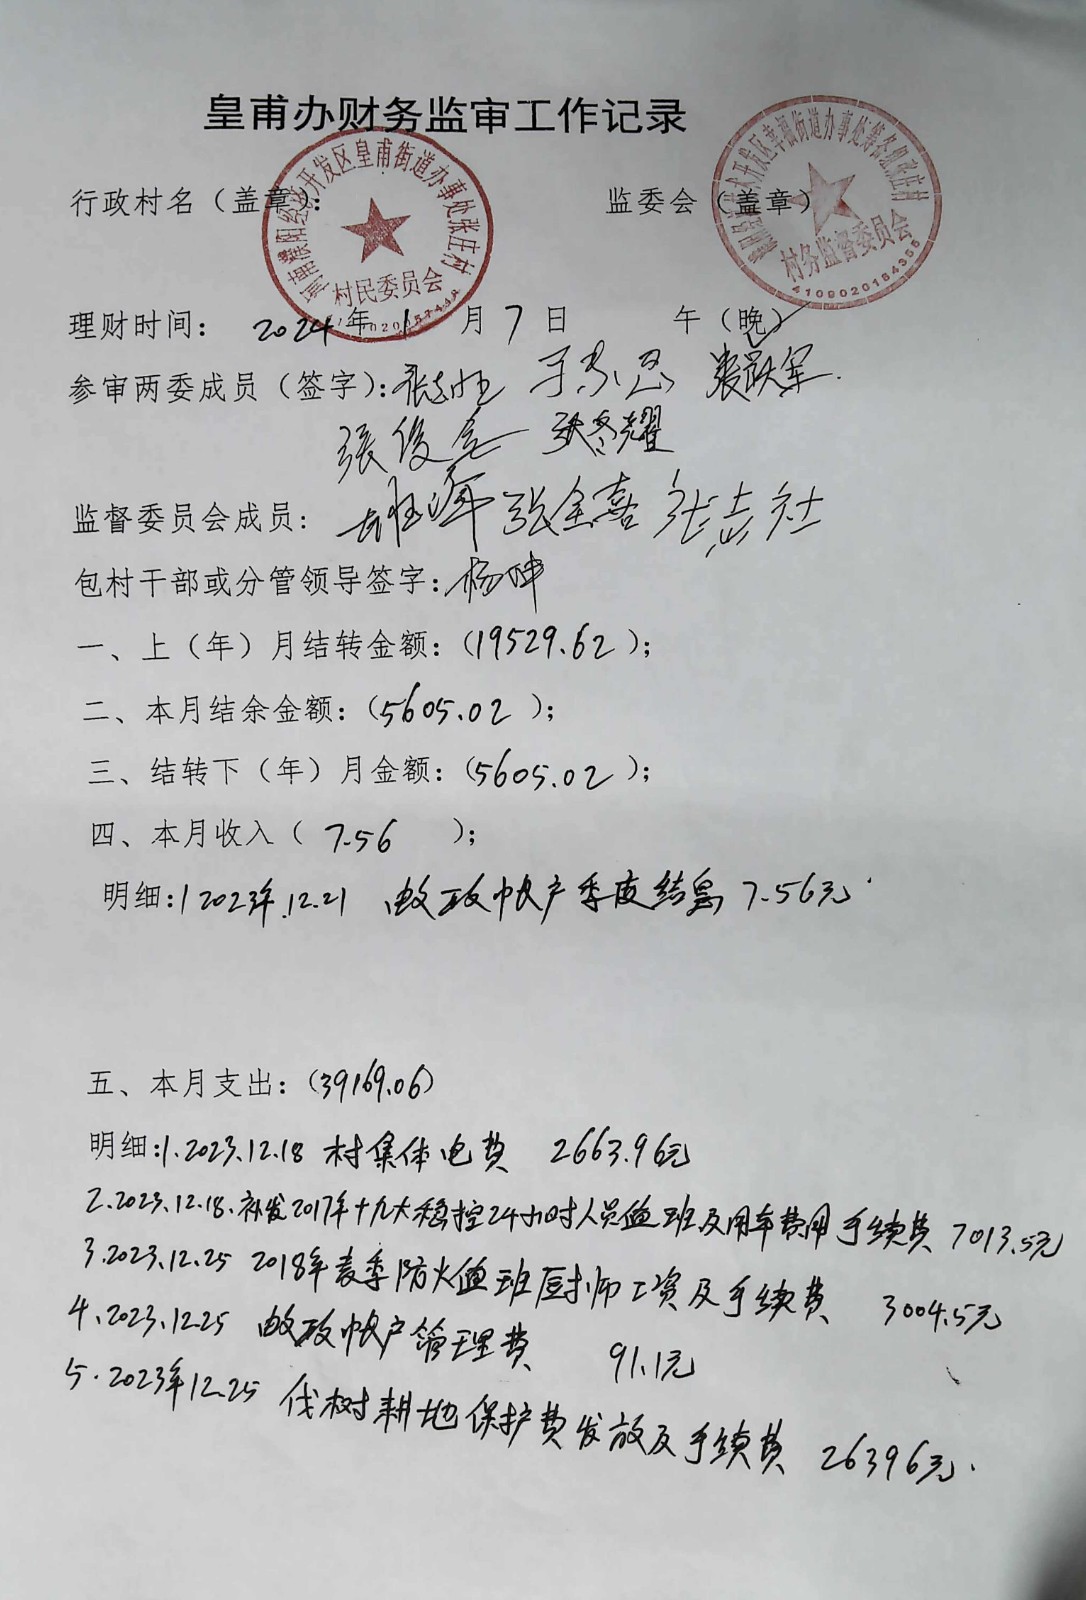 皇甫办财务监审工作记录
行政村名（盖章）： 监委会（盖章）
开发区皇甫街道办事处张庄村
村民委员会
村务监督委员会
4109020184355
理财时间： 2024年 1 月 7 日 午（晚）
参审两委成员（签字）：
张俊
监督委员会成员： 张金喜 张志社
包村干部或分管领导签字：杨坤
一、上（年）月结转金额：(19529.62 );
二、本月结余金额：(5605.02 );
三、结转下（年）月金额：(5605.02 );
四、本月收入（ 7.56 );
明细:1 2023年.12.21 邮政帐户季度结息 7.56元
五、本月支出：(39169.06)
明细:1.2023.12.18 村集体电费 2663.96元
2.2023.12.18.补发2017年十九大稳控24小时人员值班及用车费用手续费 7013.5元
3.2023.12.25 2018年麦季防火值班厨师工资及手续费 3004.5元
4.2023.12.25 邮政帐户管理费 91.1元
5.2023年12.25 伐树耕地保护费发放及手续费 26396元.